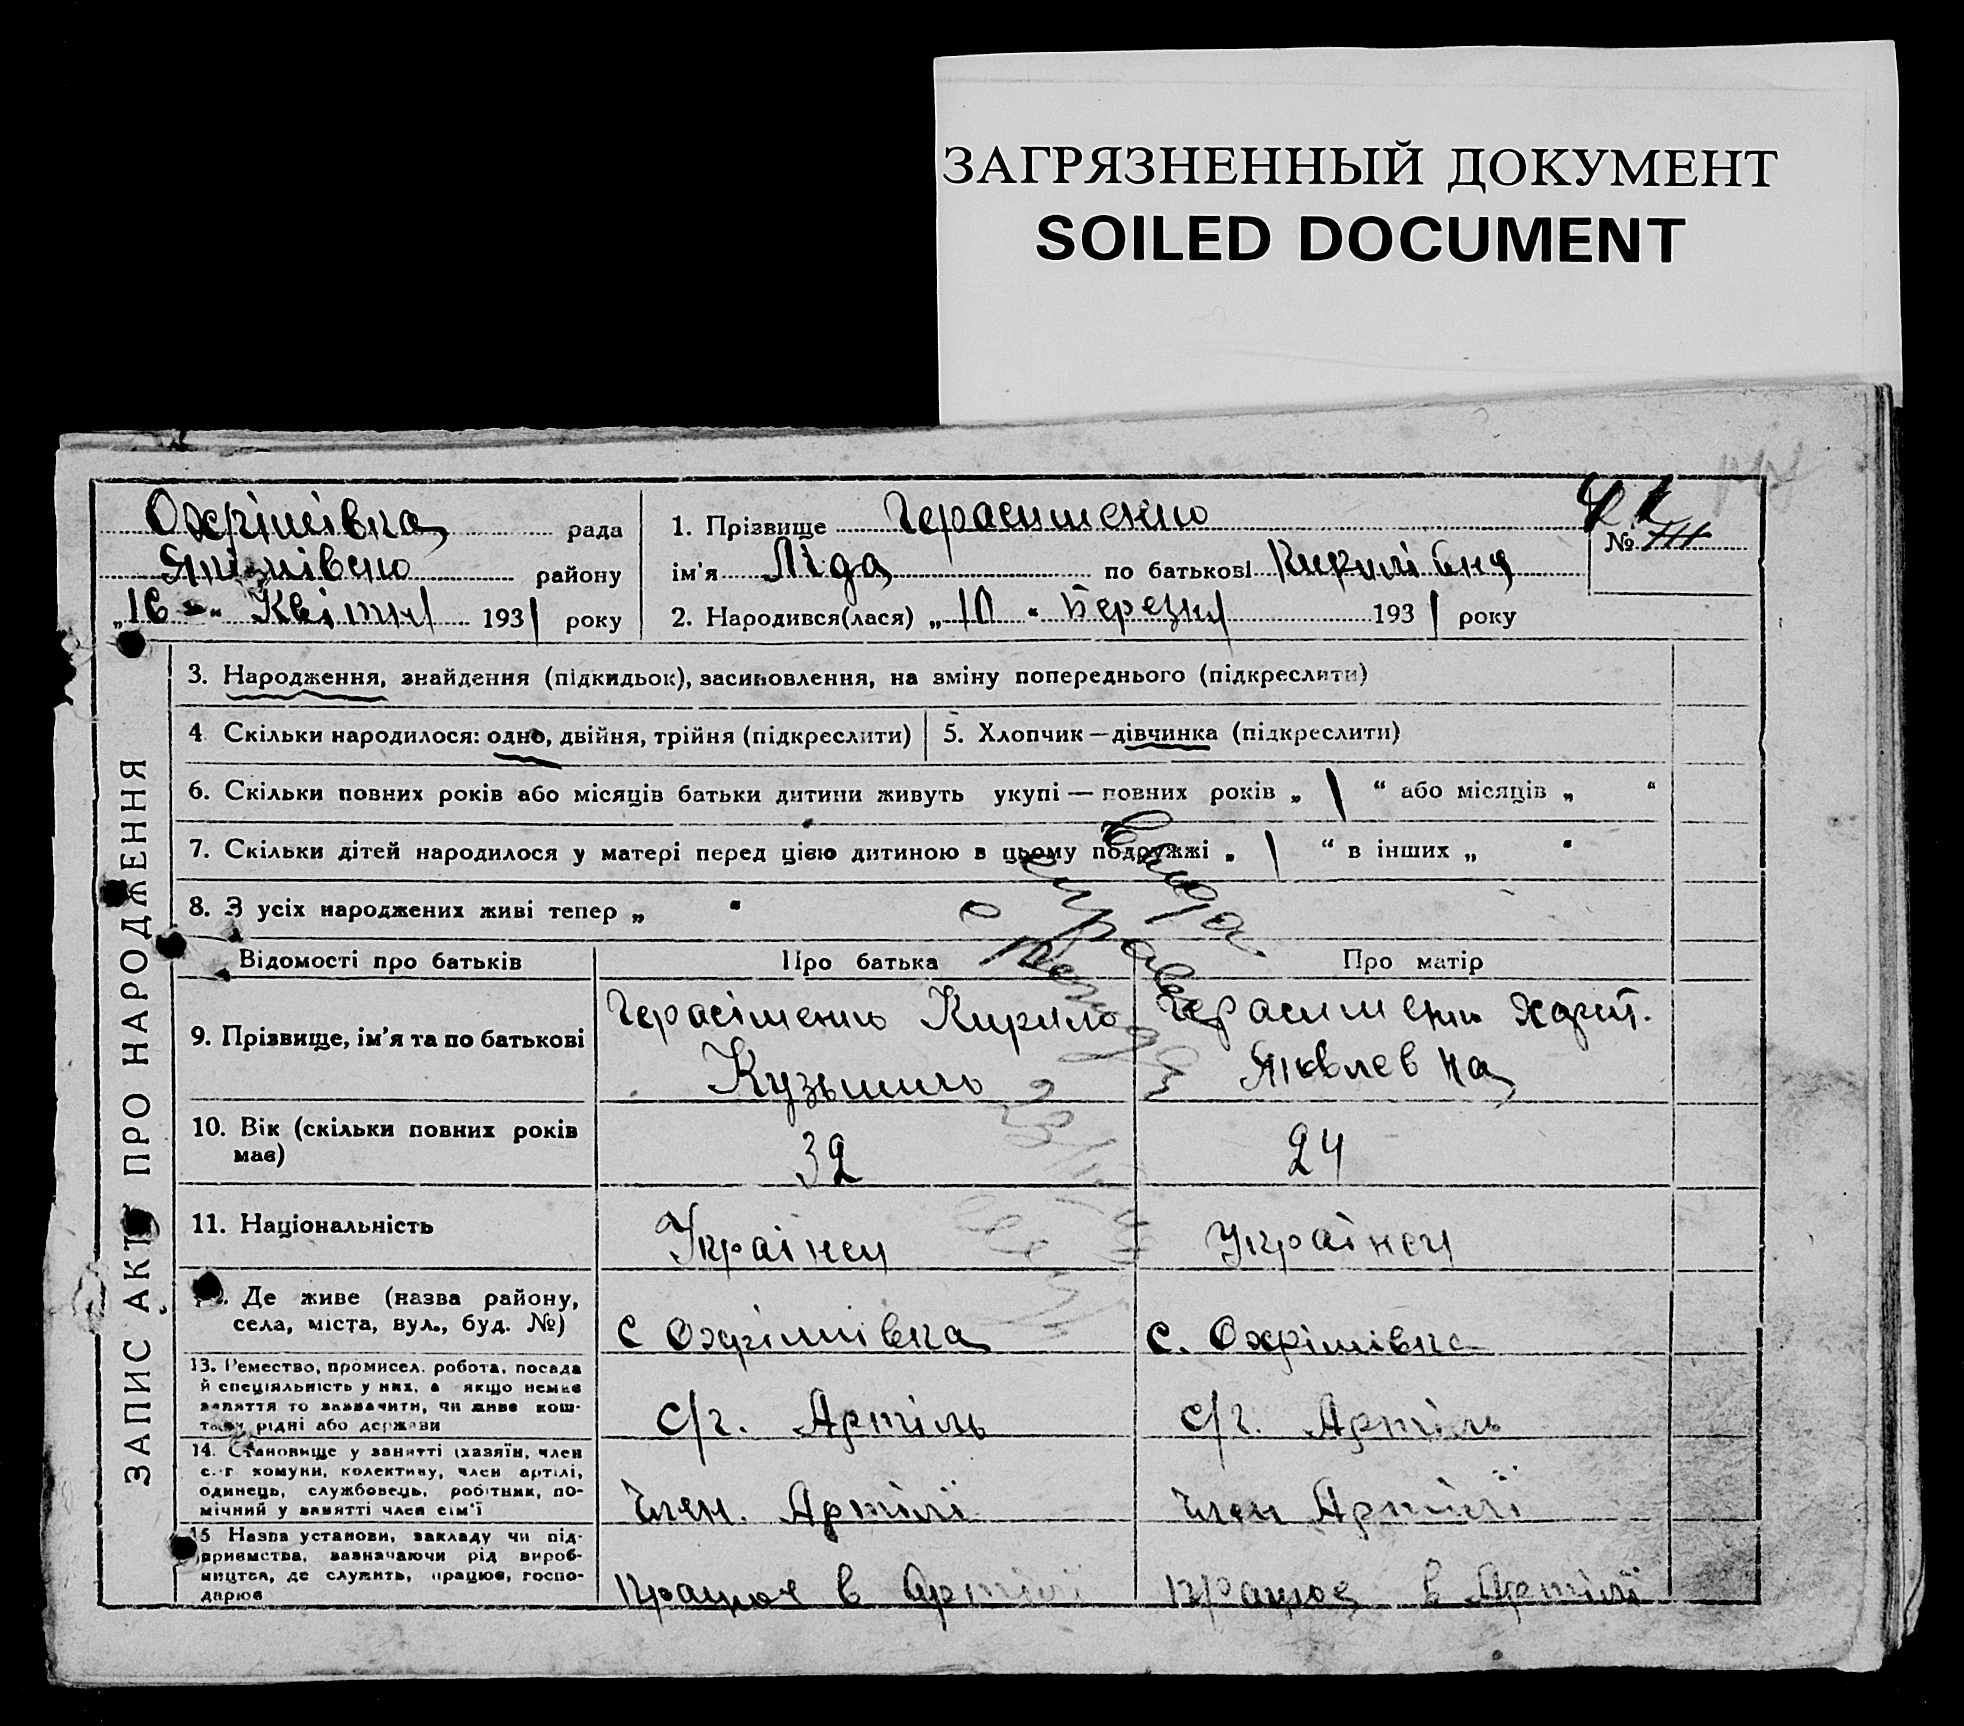 ЗАГРЯЗНЕННЫЙ ДОКУМЕНТ
SOILED DOCUMENT
Охрімівка рада
району
„16“ Квітня 1931 року
1. Прізвище Герасименко
ім'я Ліда по батькові Кирилівна
№
2. Народився(лася) „10“ Березня 1931 року
ЗАПИС АКТУ ПРО НАРОДЖЕННЯ
3. Народження, знайдення (підкидьок), засиновлення, на зміну попереднього (підкреслити)
4. Скільки народилося: одно, двійня, трійня (підкреслити)
5. Хлопчик—дівчинка (підкреслити)
6. Скільки повних років або місяців батьки дитини живуть укупі — повних років „1“ або місяців „ “
7. Скільки дітей народилося у матері перед цією дитиною в цьому подружжі „1“ в інших „ “
8. З усіх народжених живі тепер „ “
Відомості про батьків Про батька Про матір
9. Прізвище, ім'я та по батькові
Герасіменко Кирило
Герасименко Харит.
Яковлевна
10. Вік (скільки повних років
має)
32
24
11. Національність
Українец
Українец
12. Де живе (назва району,
села, міста, вул., буд. №)
с Охрімівка
с. Охрімівка
13. Ремество, промисел. робота, посада
й спеціяльність у них, а якщо немає
заняття то зазначити, чи живе кош-
тами рідні або держави
с/г. Артіль
с/г. Артіль
14. Становище у занятті (хазяїн, член
с.-г комуни, колективу, член артілі,
одинець, службовець, робітник, по-
мічний у занятті член сім'ї
Член. Артілі
Член Артілі
15 Назва установи, закладу чи під-
приємства, зазначаючи рід вироб-
ництва, де служить, працює, госпо-
дарює
працює в Артілі
працює в Артілі